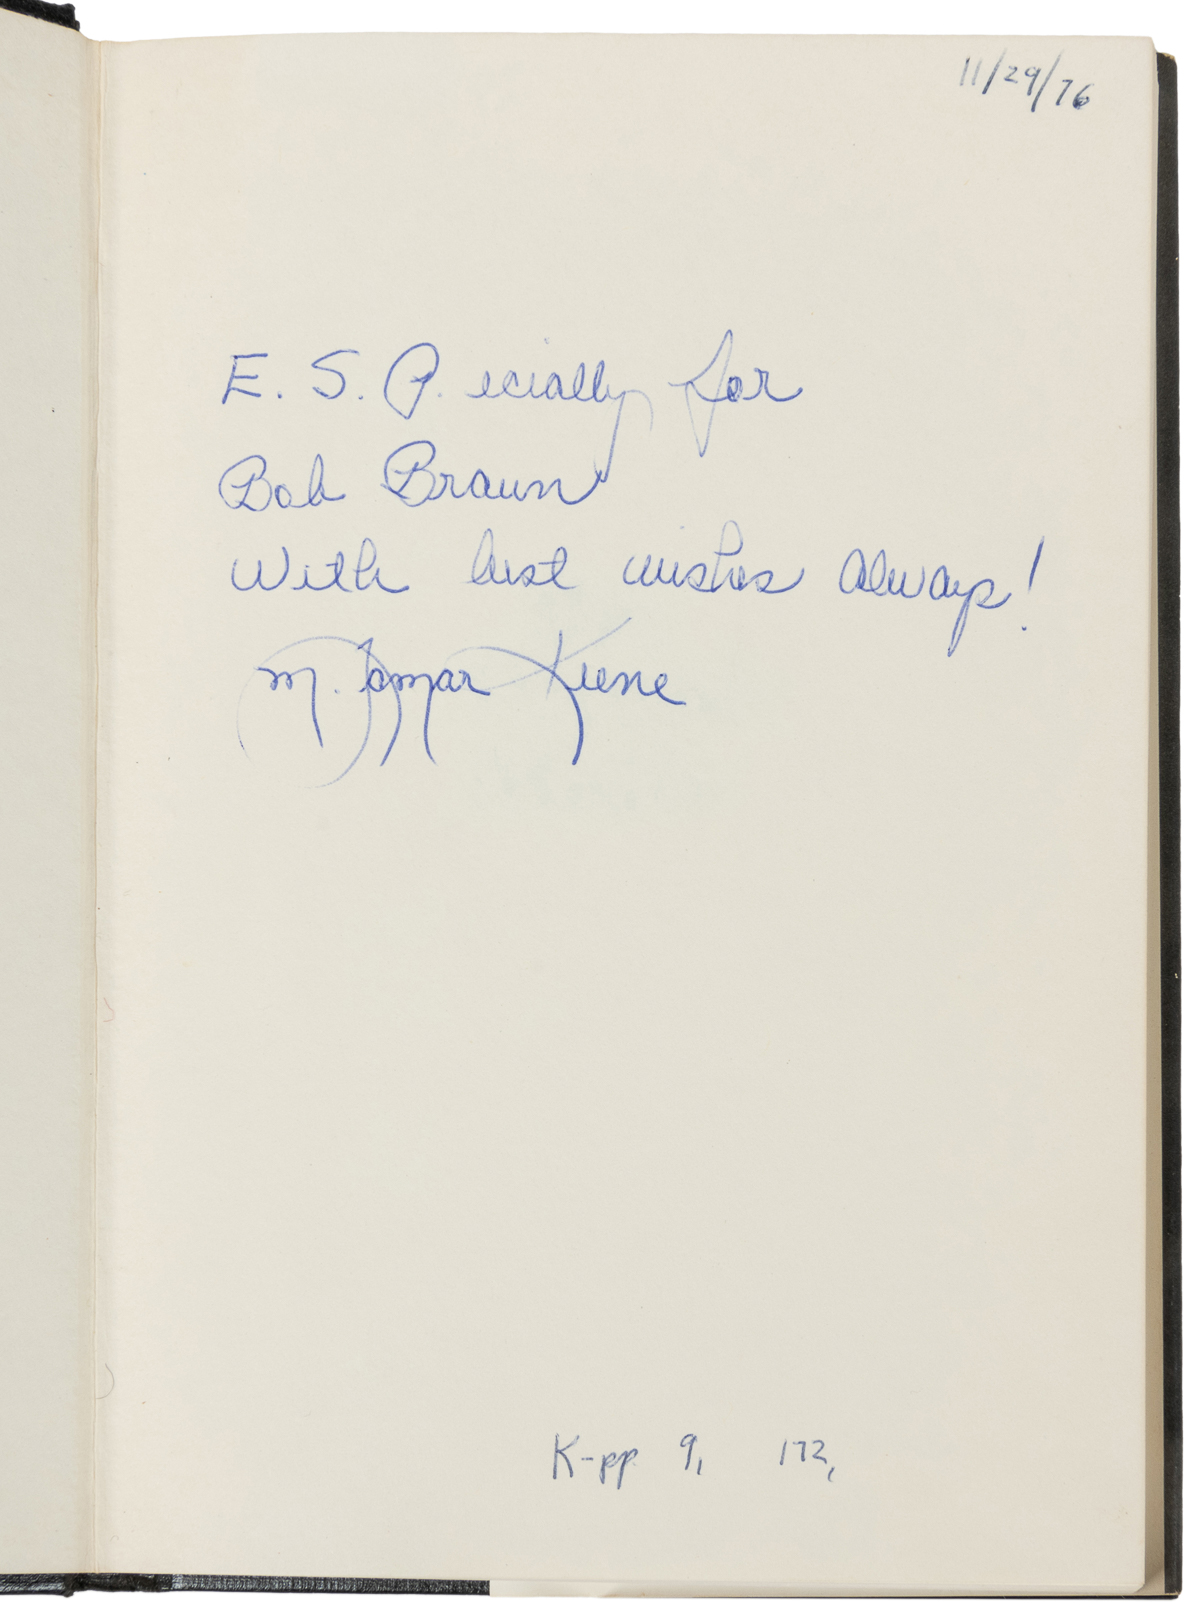 11/29/76
E. S. P. ecially for
Bob Braun
With best wishes always!
M. Lamar Keene
K-pp 9, 172,